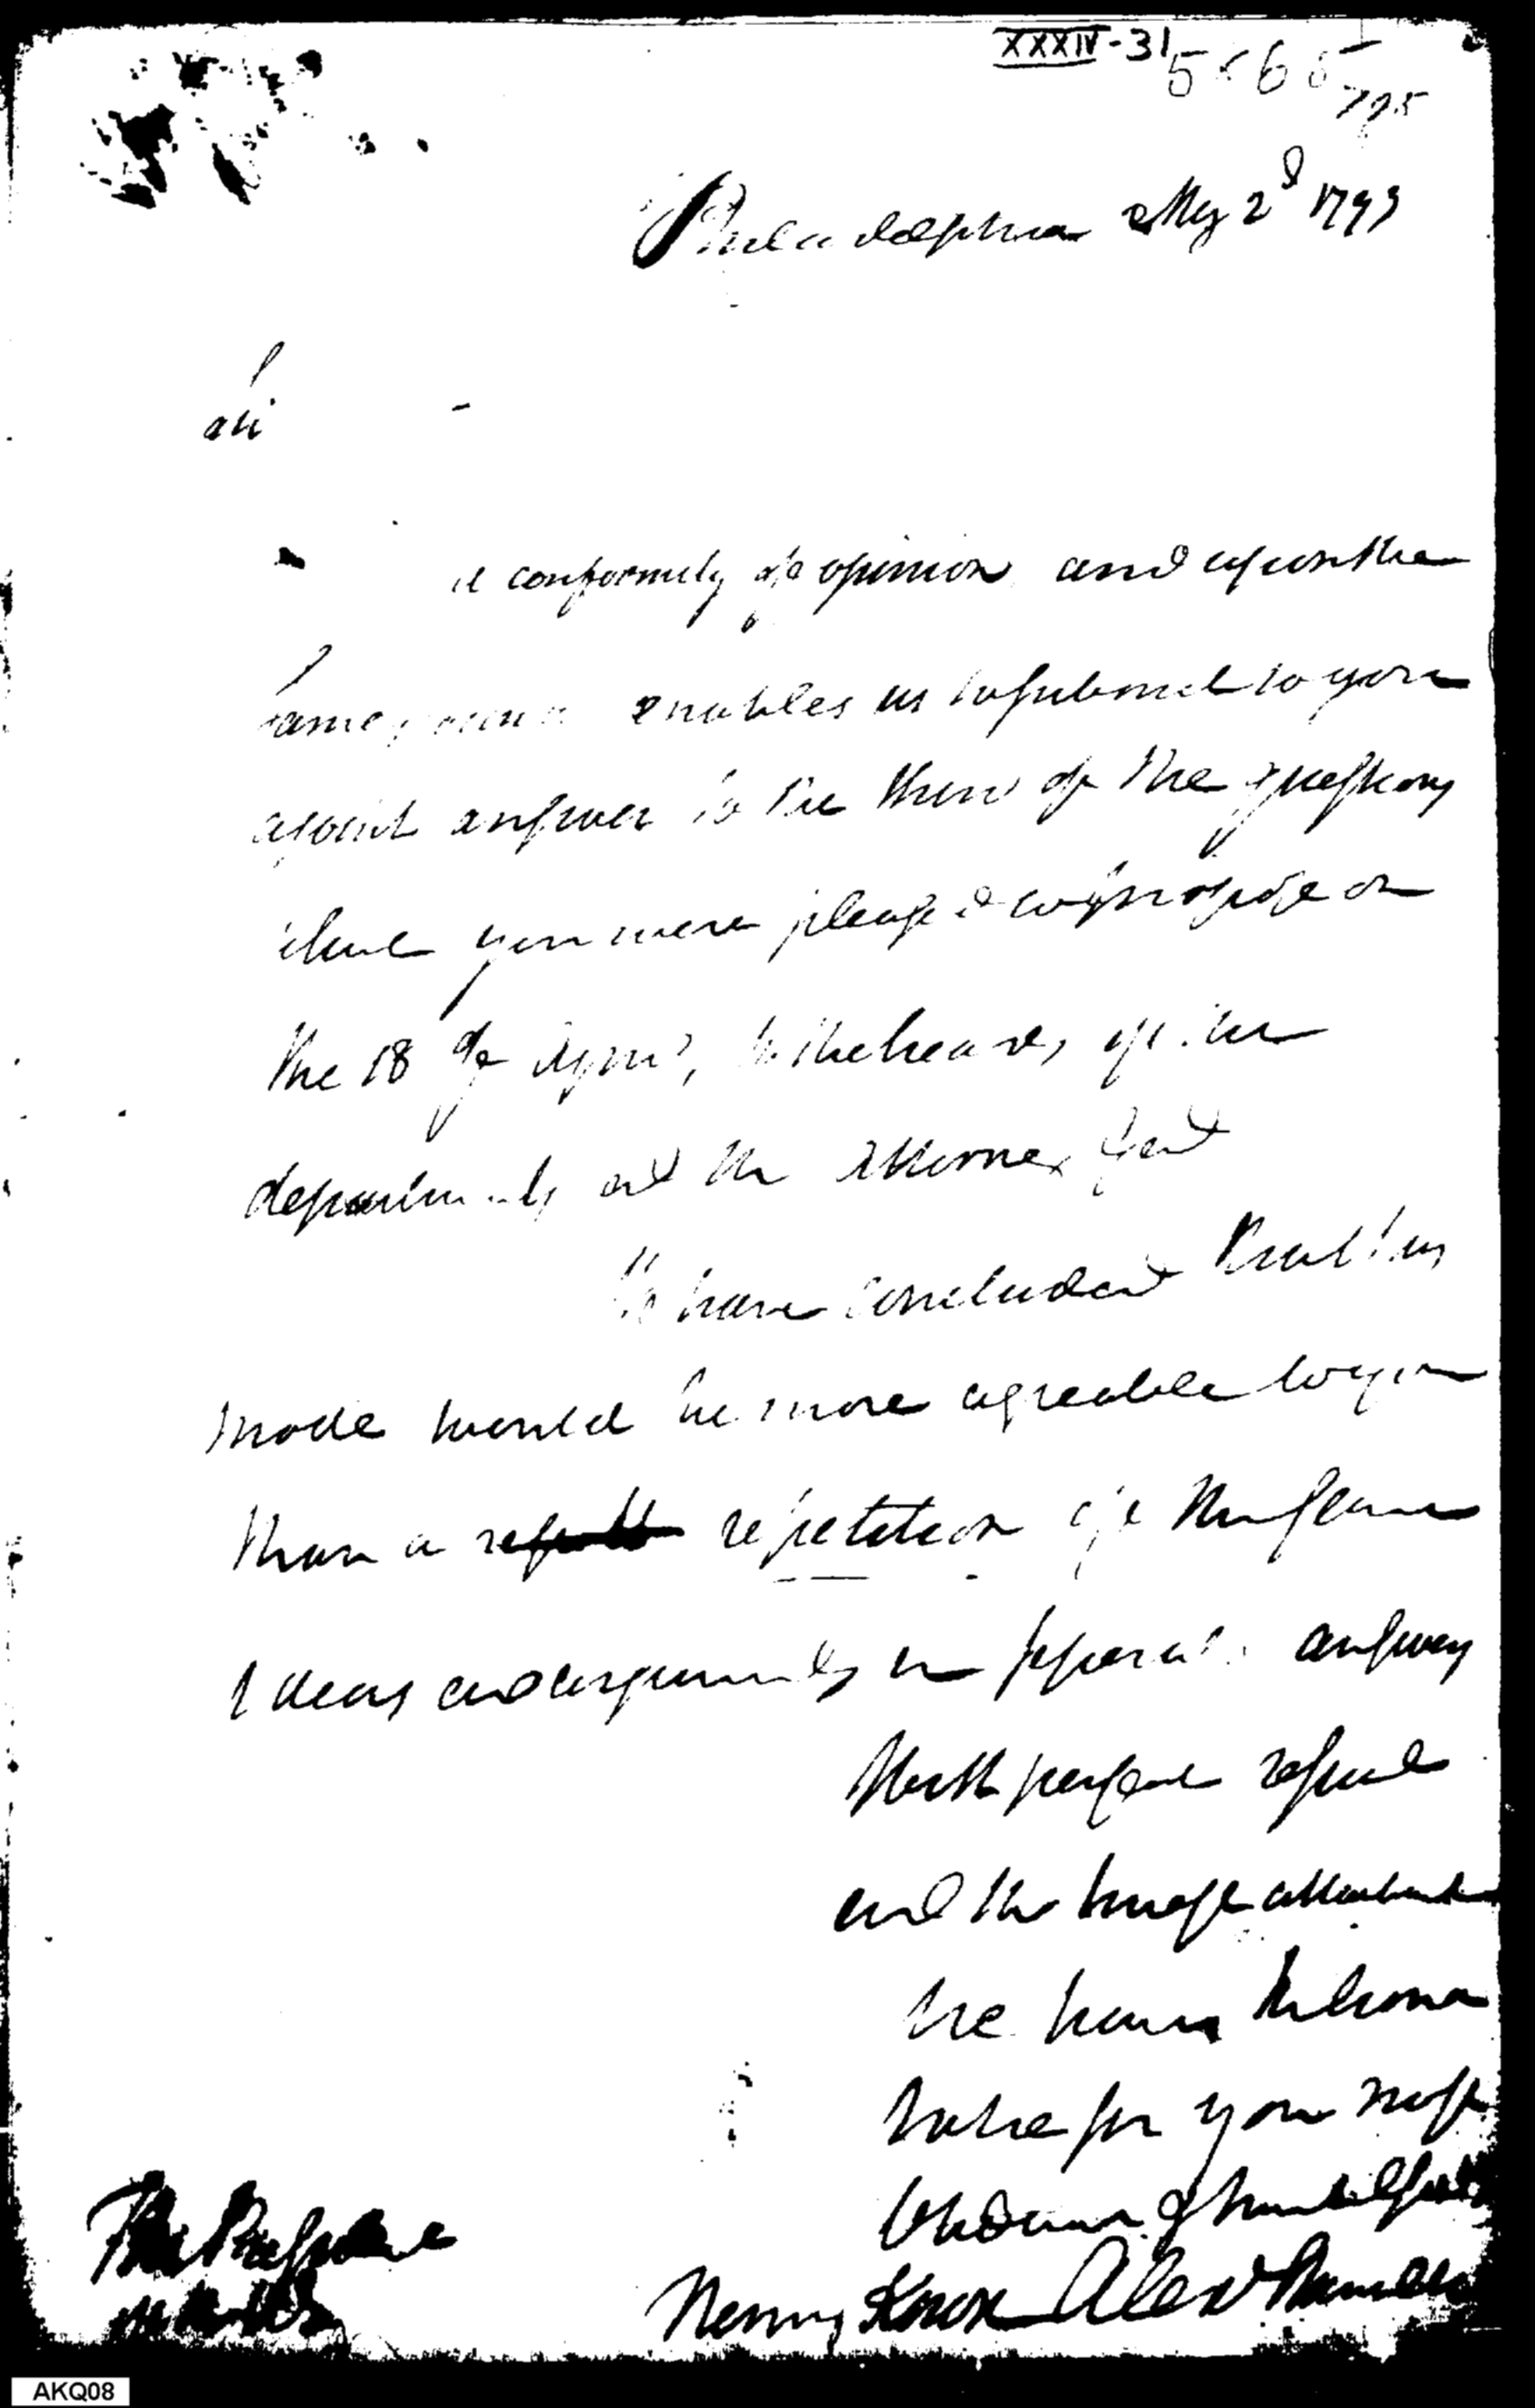 XXXIV-31
Philadelphia May 2d 1793
Sir
A conformity of opinion and upon the
same enables us to submit to you
a joint answer to the third of the questions
which you were pleased to propose on
the 18 of April, to the heads of the
departments and the Attorney Genl
We have concluded that this
mode would be more agreable to you
than a repetition of the same
Ideas and arguments in seperate answers
With perfect respect
and the truest attachment
we have the honor
to be Sir your most
Obedient & humble Servts
Henry Knox Alex Hamilton
The President
AKQ08